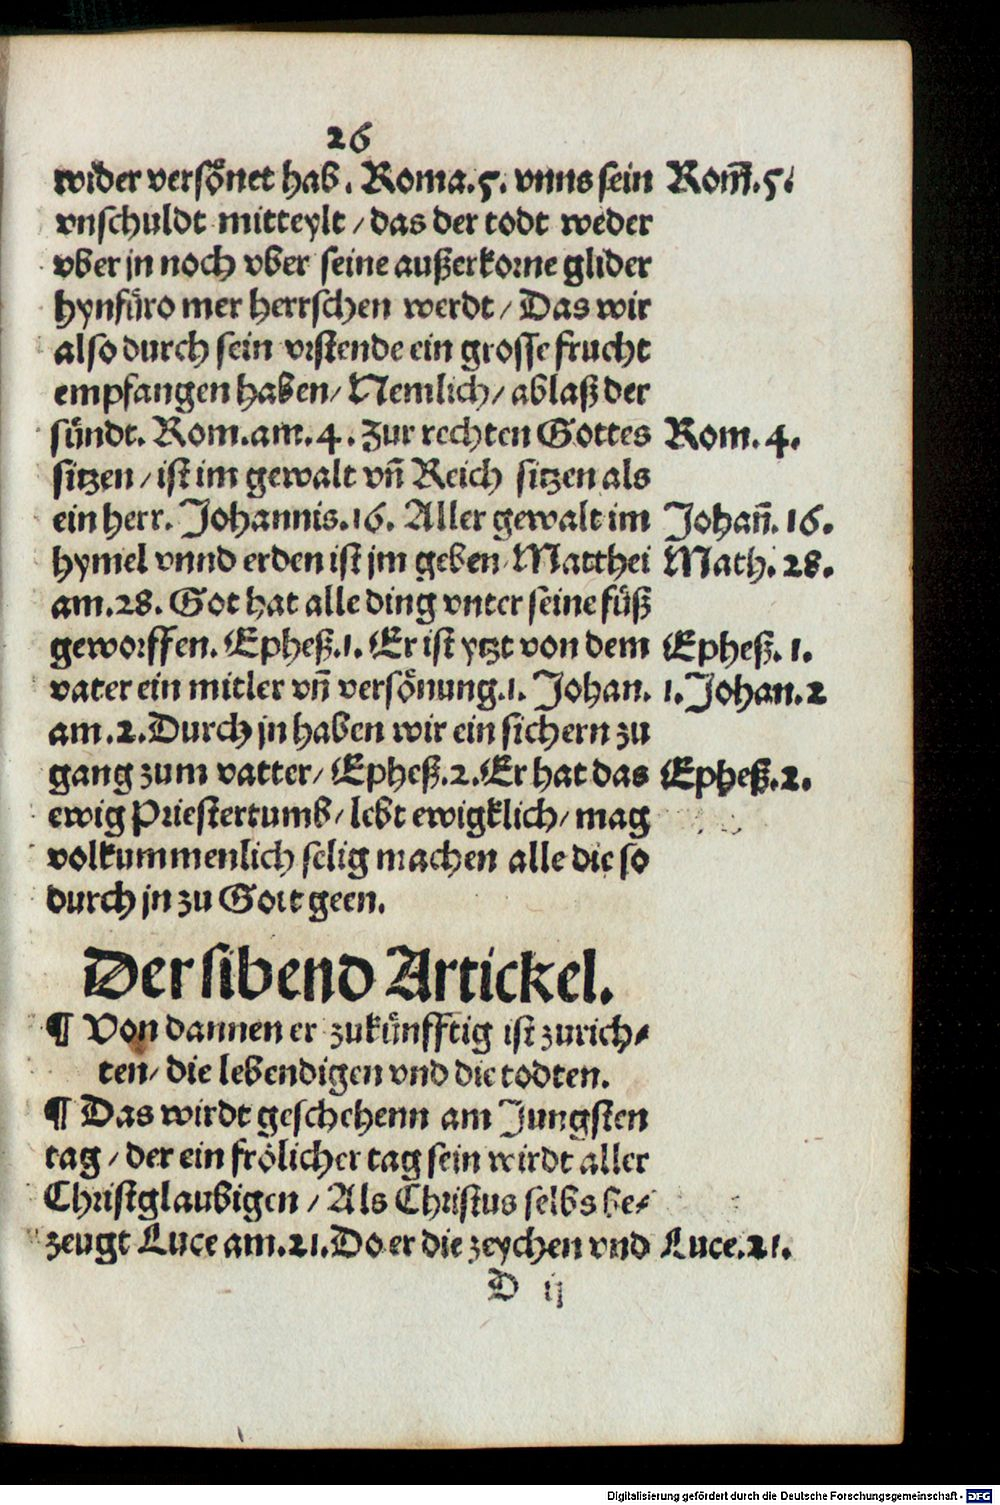 26
wider versönet hab. Roma.5. vnns sein Rom̅.5.
vnschuldt mitteylt / das der todt weder
vber jn noch vber seine außerkorne glider
hynfüro mer herrschen werdt / Das wir
also durch sein vrstende ein grosse frucht
empfangen haben / Nemlich / ablaß der
sündt. Rom.am.4. Zur rechten Gottes Rom.4.
sitzen / ist im gewalt vn̅ Reich sitzen als
ein herr. Johannis.16. Aller gewalt im Johan̅.16.
hymel vnnd erden ist jm geben Matthei Math.28.
am.28. Got hat alle ding vnter seine füß
geworffen. Epheß.1. Er ist ytzt von dem Epheß.1.
vater ein mitler vn̅ versönung.1. Johan. 1.Johan.2
am.2.Durch jn haben wir ein sichern zu
gang zum vatter / Epheß.2.Er hat das Epheß.2.
ewig Priestertumb / lebt ewigklich / mag
volkummenlich selig machen alle die so
durch jn zu Gott geen.
Der sibend Artickel.
¶ Von dannen er zukünfftig ist zurich⸗
ten / die lebendigen vnd die todten.
¶ Das wirdt geschehenn am Jungsten
tag / der ein frölicher tag sein wirdt aller
Christglaubigen / Als Christus selbs be⸗
zeugt Luce am.21.Do er die zeychen vnd Luce.21.
D ij
Digitalisierung gefördert durch die Deutsche Forschungsgemeinschaft - DFG